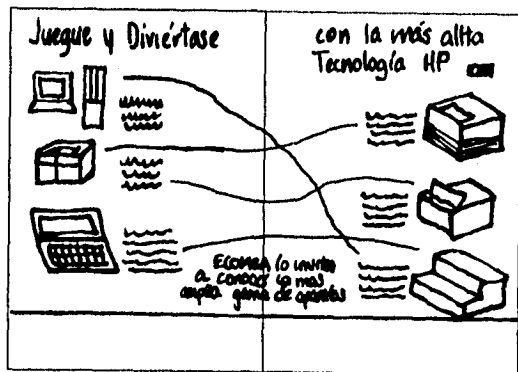 Juegue y Diviértase
con la más allta
Tecnología HP
lo invita
a conocer la mas
amplia gama de aparatos